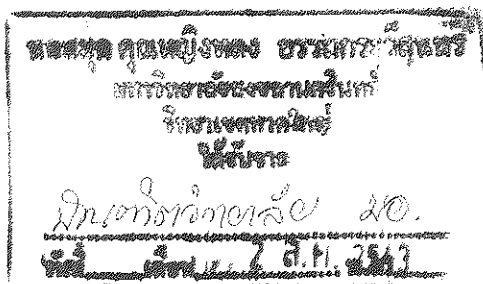 หอสมุด คุณหญิงหลง อรรถกระวีสุนทร
มหาวิทยาลัยสงขลานครินทร์
วิทยาเขตหาดใหญ่
ได้รับจาก
บัณฑิตวิทยาลัย มอ.
วันที่ เดือน 2 ส.ค. 2543